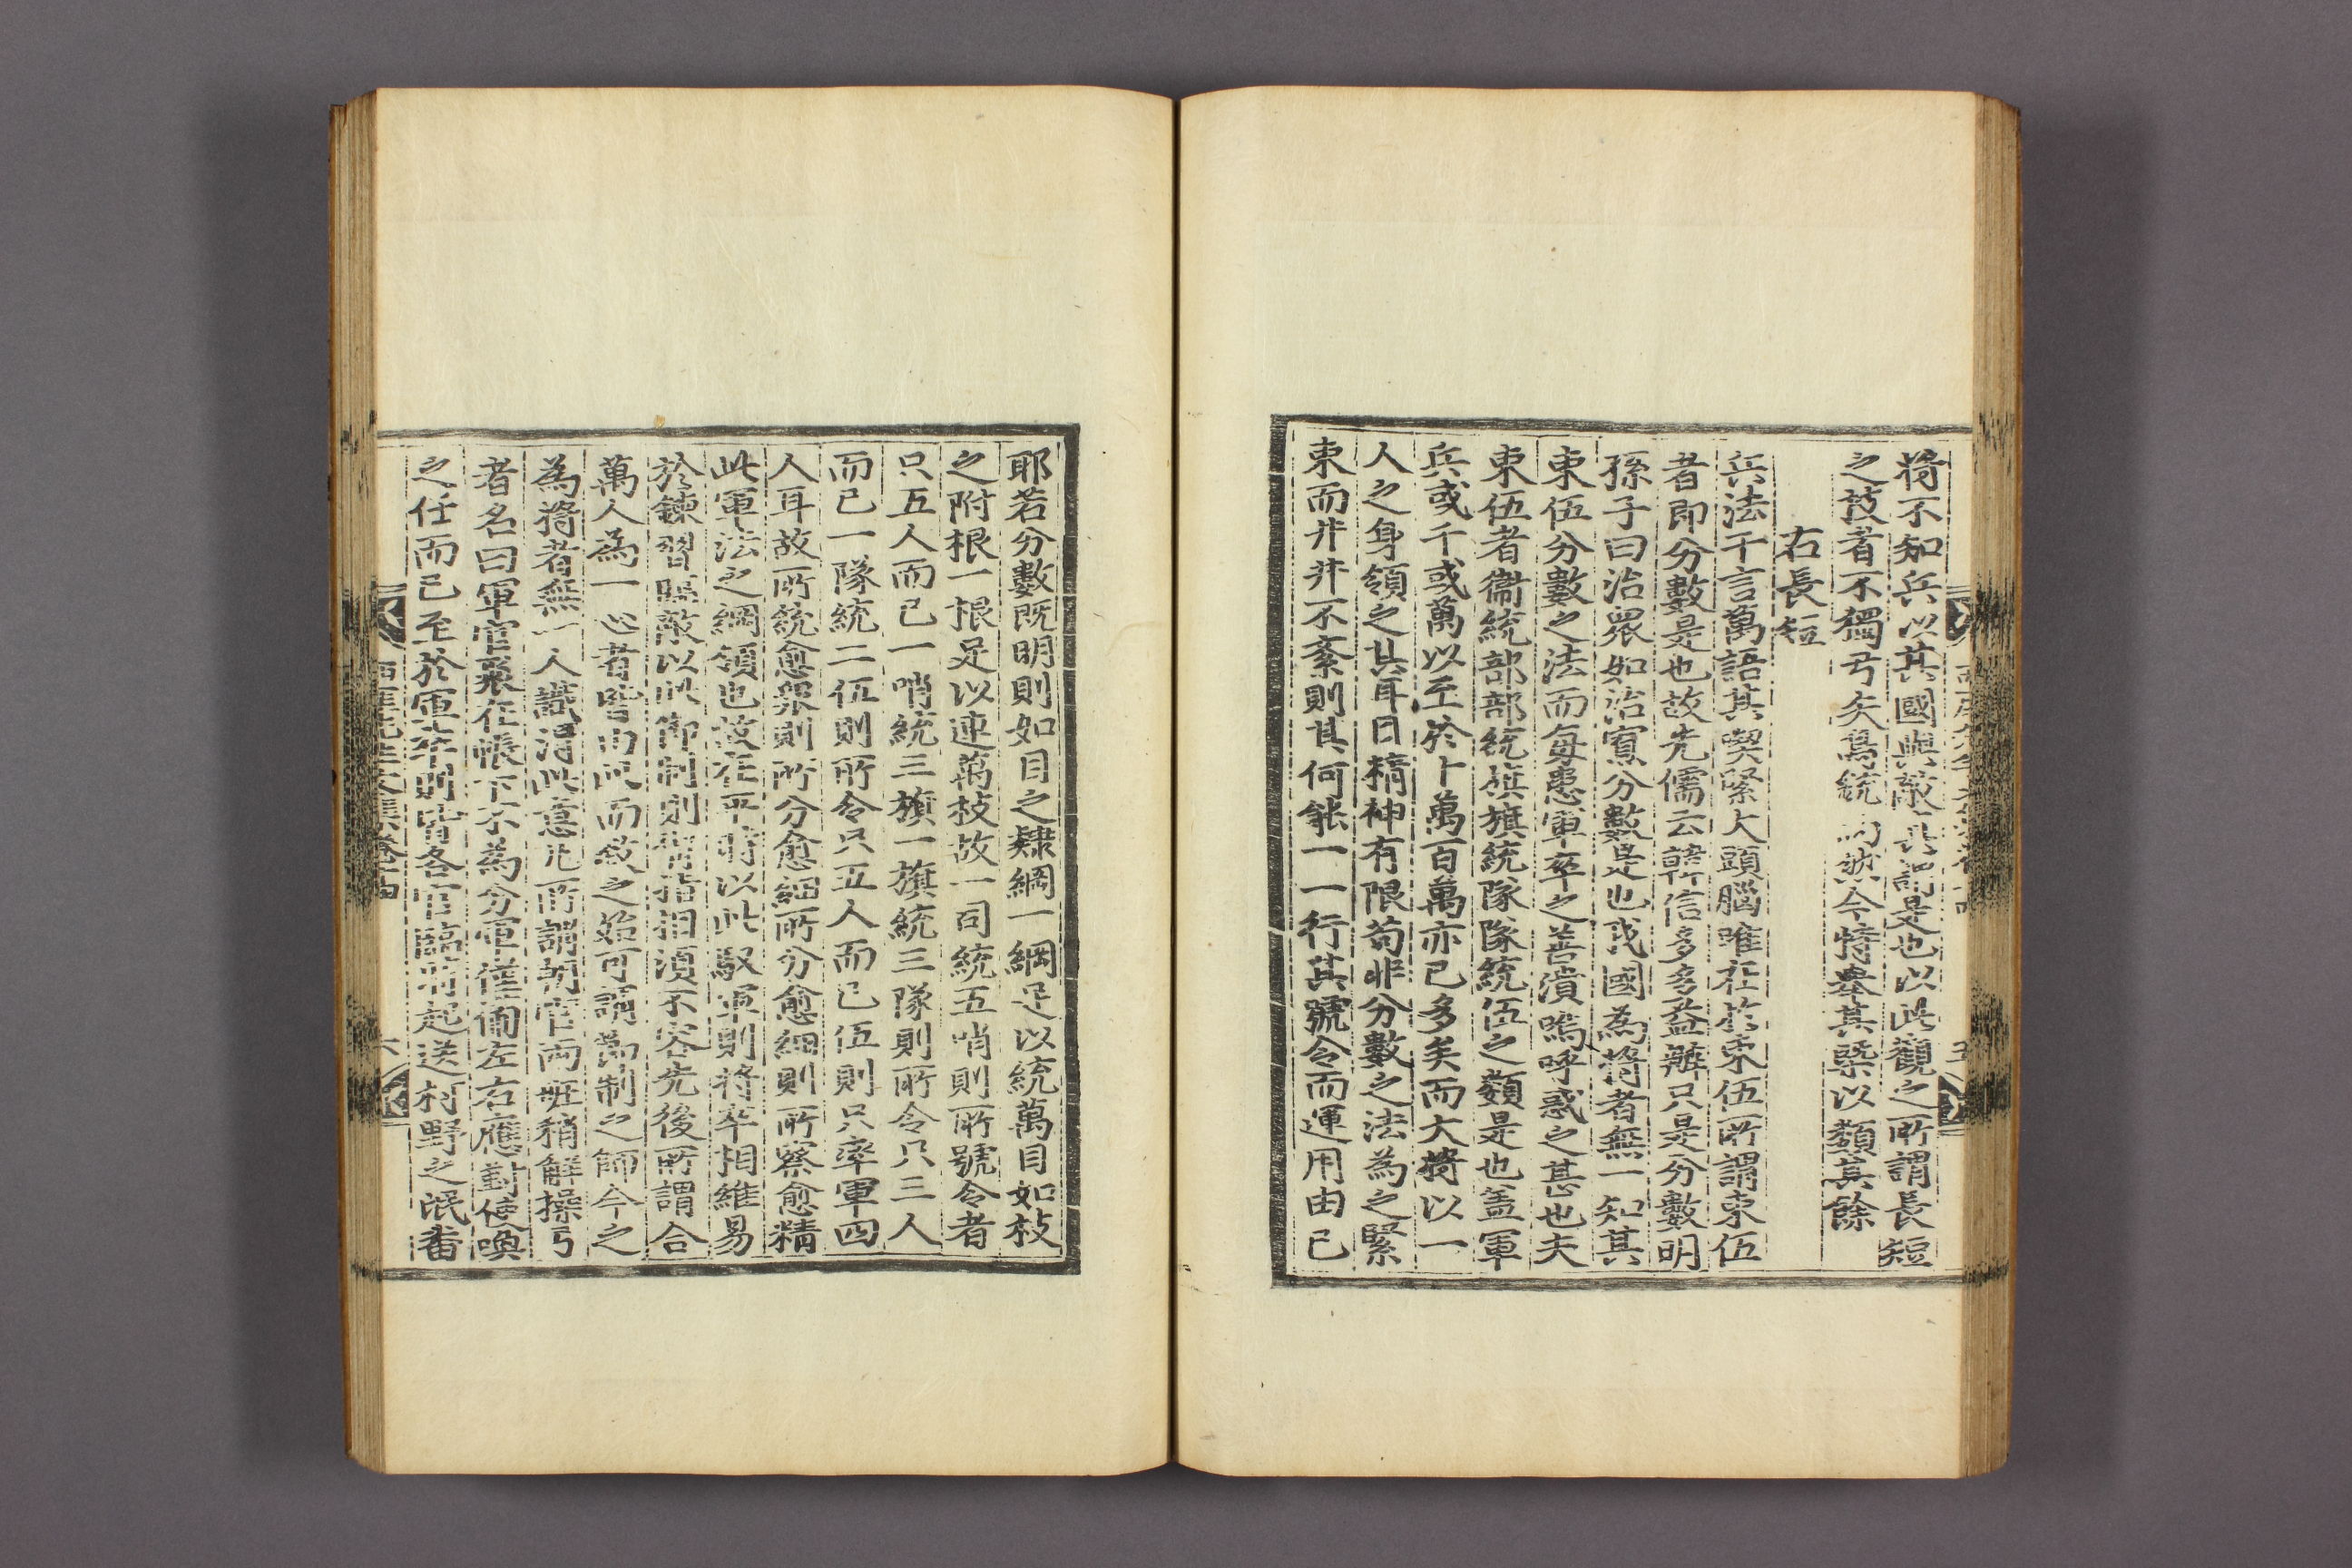 將不知兵以其國與敵此謂是也以此觀之所謂長短
之技者不獨弓矢鳥銃為然今特擧其槩以類其餘
右長短
兵法千言萬語其喫緊大頭腦唯在於束伍所謂束伍
者即分數是也故先儒云韓信多多益辦只是分數明
孫子曰治衆如治寡分數是也我國為將者無一知其
束伍分數之法而每患軍卒之善潰嗚呼惑之甚也夫
束伍者衞統部部統旗旗統隊隊統伍之類是也盖軍
兵或千或萬以至於十萬百萬亦已多矣而大將以一
人之身領之其耳目精神有限苟非分數之法為之緊
束而井井不紊則其何能一一行其號令而運用由己
耶若分數既明則如目之隸綱一綱足以統萬目如枝
之附根一根足以連萬枝故一司統五哨則所號令者
只五人而已一哨統三旗一旗統三隊則所令只三人
而已一隊統二伍則所令只五人而已伍則只率軍四
人耳故所統愈衆則所分愈細所分愈細則所察愈精
此軍法之綱領也故在平時以此馭軍則將卒相維易
於鍊習臨敵以此節制則臂指相湏不容先後所謂合
萬人為一心者皆由此而致之始可謂節制之師今之
為將者無一人識得此意凡所謂朝官兩班稍解操弓
者名曰軍官聚在帳下不為分軍僅備左右應對使喚
之任而已至於軍卒則皆各官臨時起送村野之氓番
西厓先生文集卷十四
六